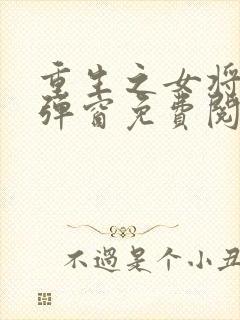 重生之女将
弹窗免費閱
不過是个小丑